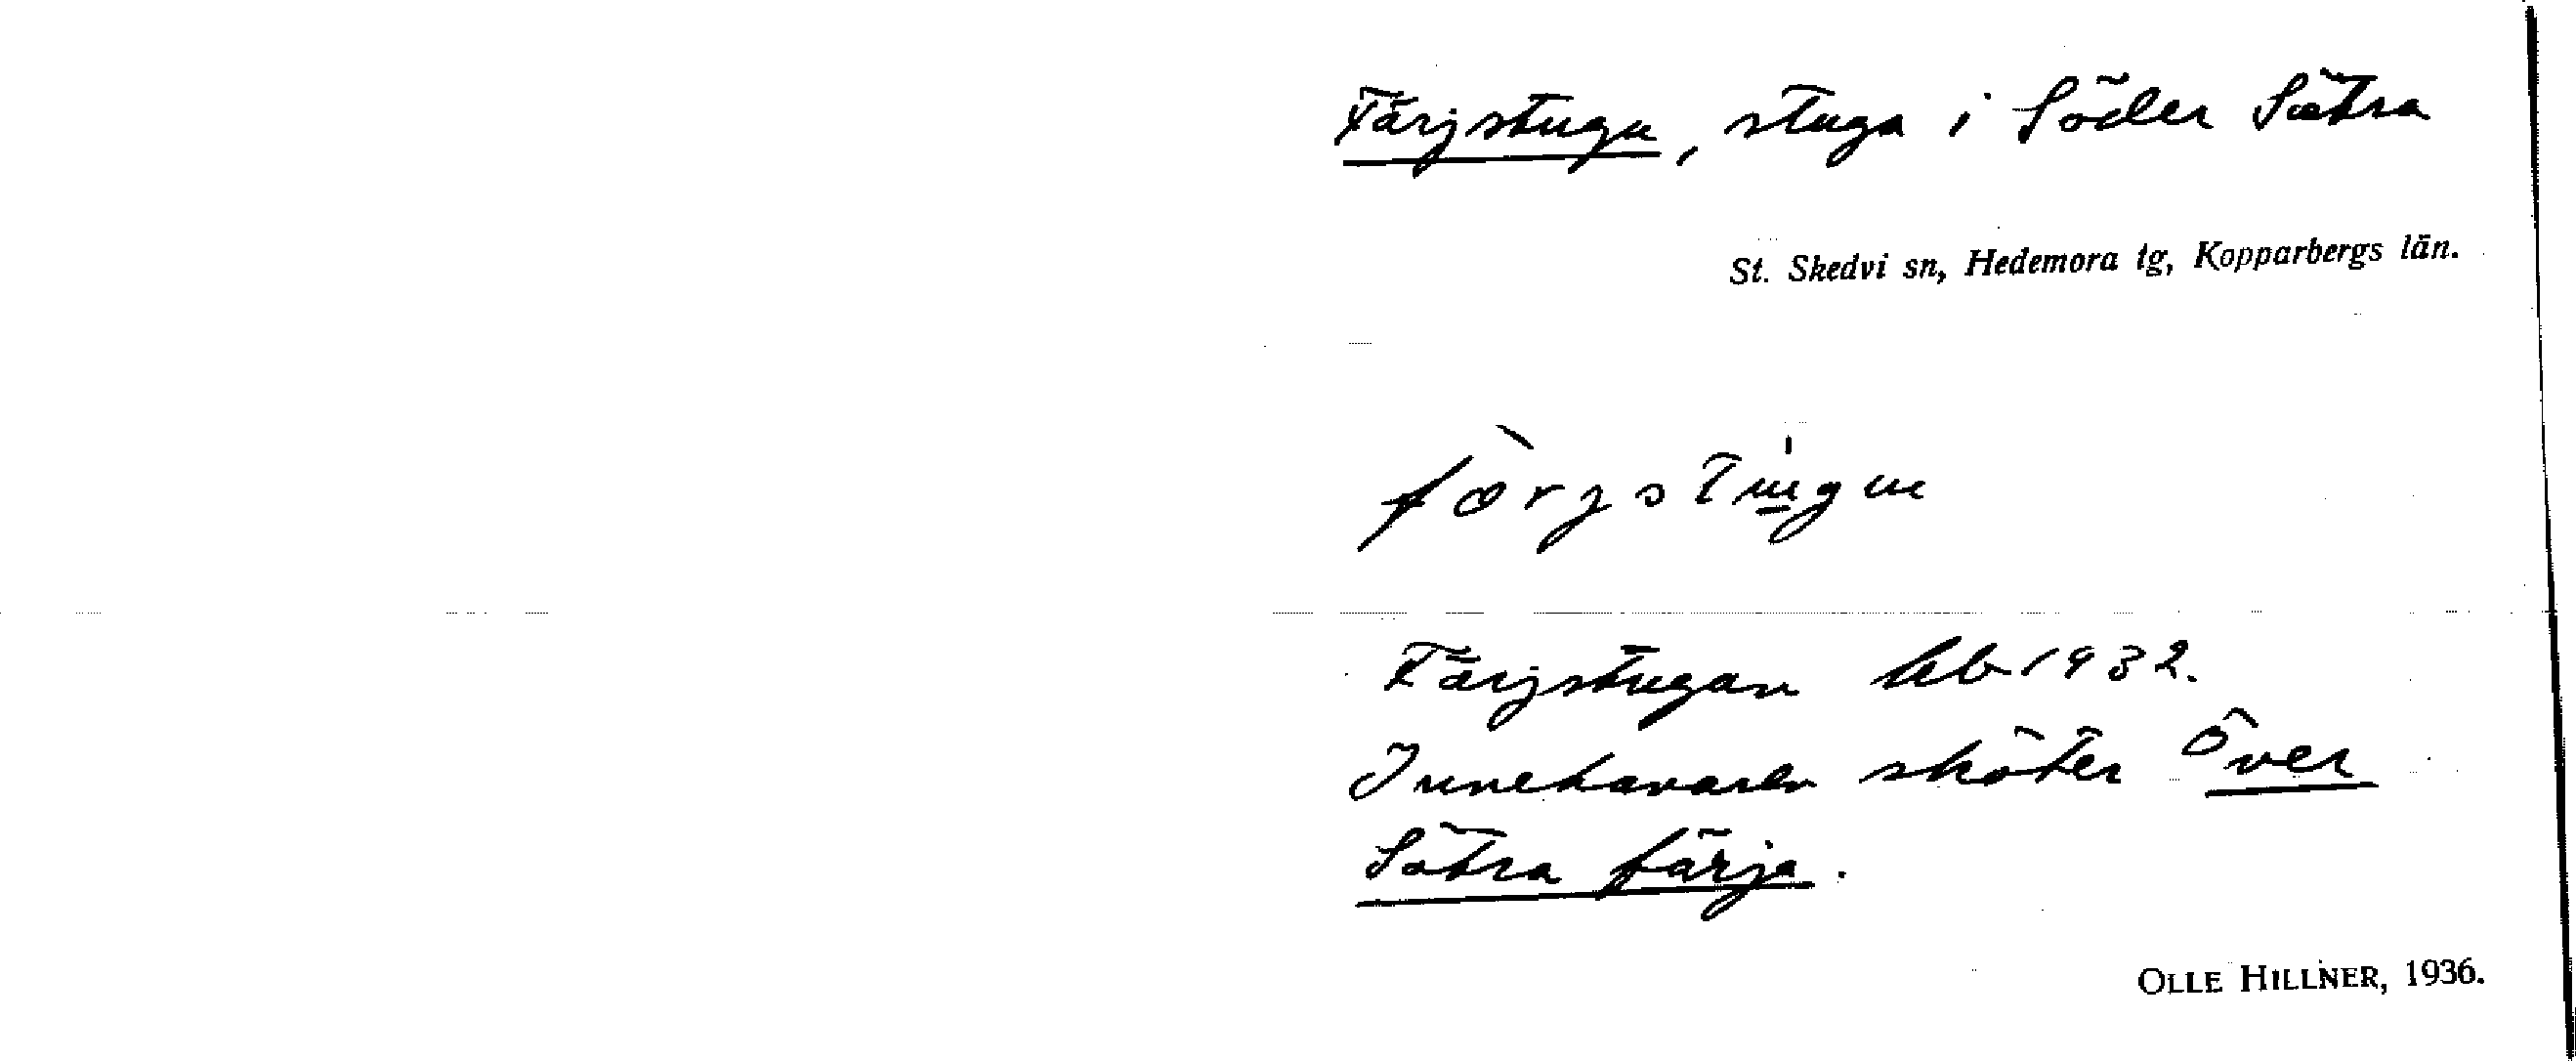 Färjstugu, stuga i Söder Sätra
St. Skedvi sn, Hedemora tg, Kopparbergs län.
Färjstugan hb 1932.
Innehavaren sköter Över
Sätra färja.
OLLE HILLNER, 1936.